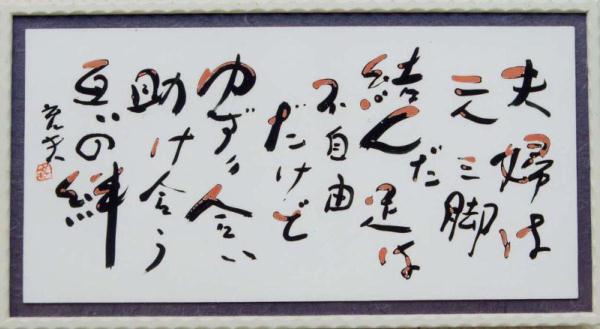 夫婦は
二人三脚
結んだ足は
不自由
だけど
ゆずり合い
助け合う
互いの絆